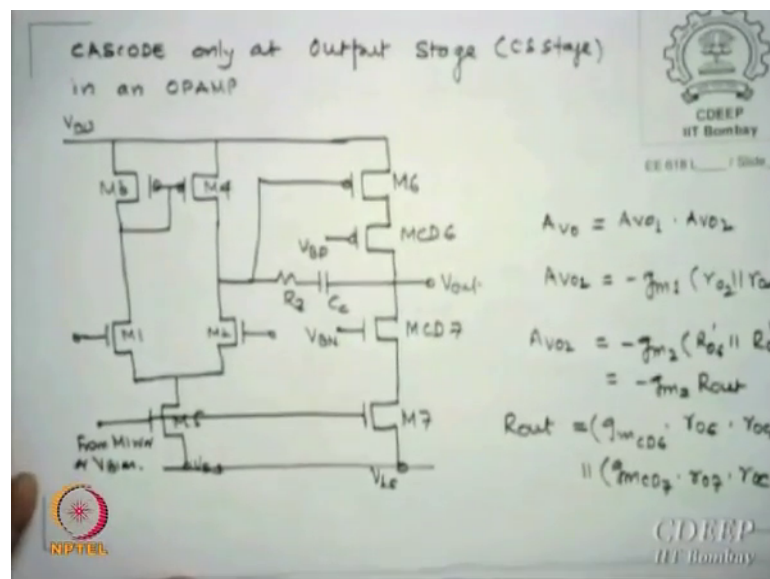 CASCODE only at Output Stage (CS Stage)
in an OPAMP
CDEEP
IIT Bombay
EE 618 L____ / Slide
VDD
M3
M4
M6
VBP
MCD6
RZ
CC
Vout
M1
M2
VBN
MCD7
M5
M7
From
VBias.
VSS
AVO = AVO1 . AVO2
= -gm1 (ro2 ||
AVO2 = -gm2 (R'O6 ||
= -gm2 Rout
Rout = (gmCD6 . rO6 .
|| (gmCD7 . rO7 .
NPTEL
CDEEP
IIT Bombay